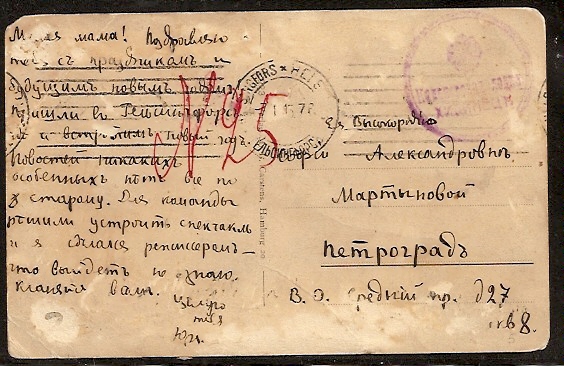 Милая мама! Поздравляю
тебя съ праздникомъ и
будущимъ новымъ годомъ.
Пришли въ Гельсингфорсъ
и встрѣтимъ новый годъ.
Новостей никакихъ
особенныхъ нѣтъ все по
старому. Для команды
рѣшили устроить спектакль
и я сдѣлался режиссеромъ —
что выйдетъ не знаю.
Кланяюсь вамъ. Цѣлую
тебя
№ 25
HELSINGFORS
Ея Высокородію
Александровнѣ
Мартыновой
Петроградъ
В. О. Средній пр. д 27
кв 8.
Hamburg